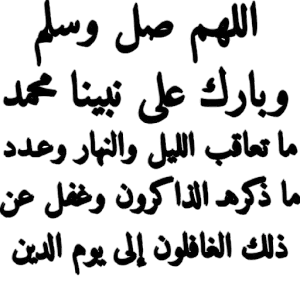 اللهم صل وسلم
وبارك على نبينا محمد
ما تعاقب الليل والنهار وعدد
ما ذكره الذاكرون وغفل عن
ذلك الغافلون إلى يوم الدين